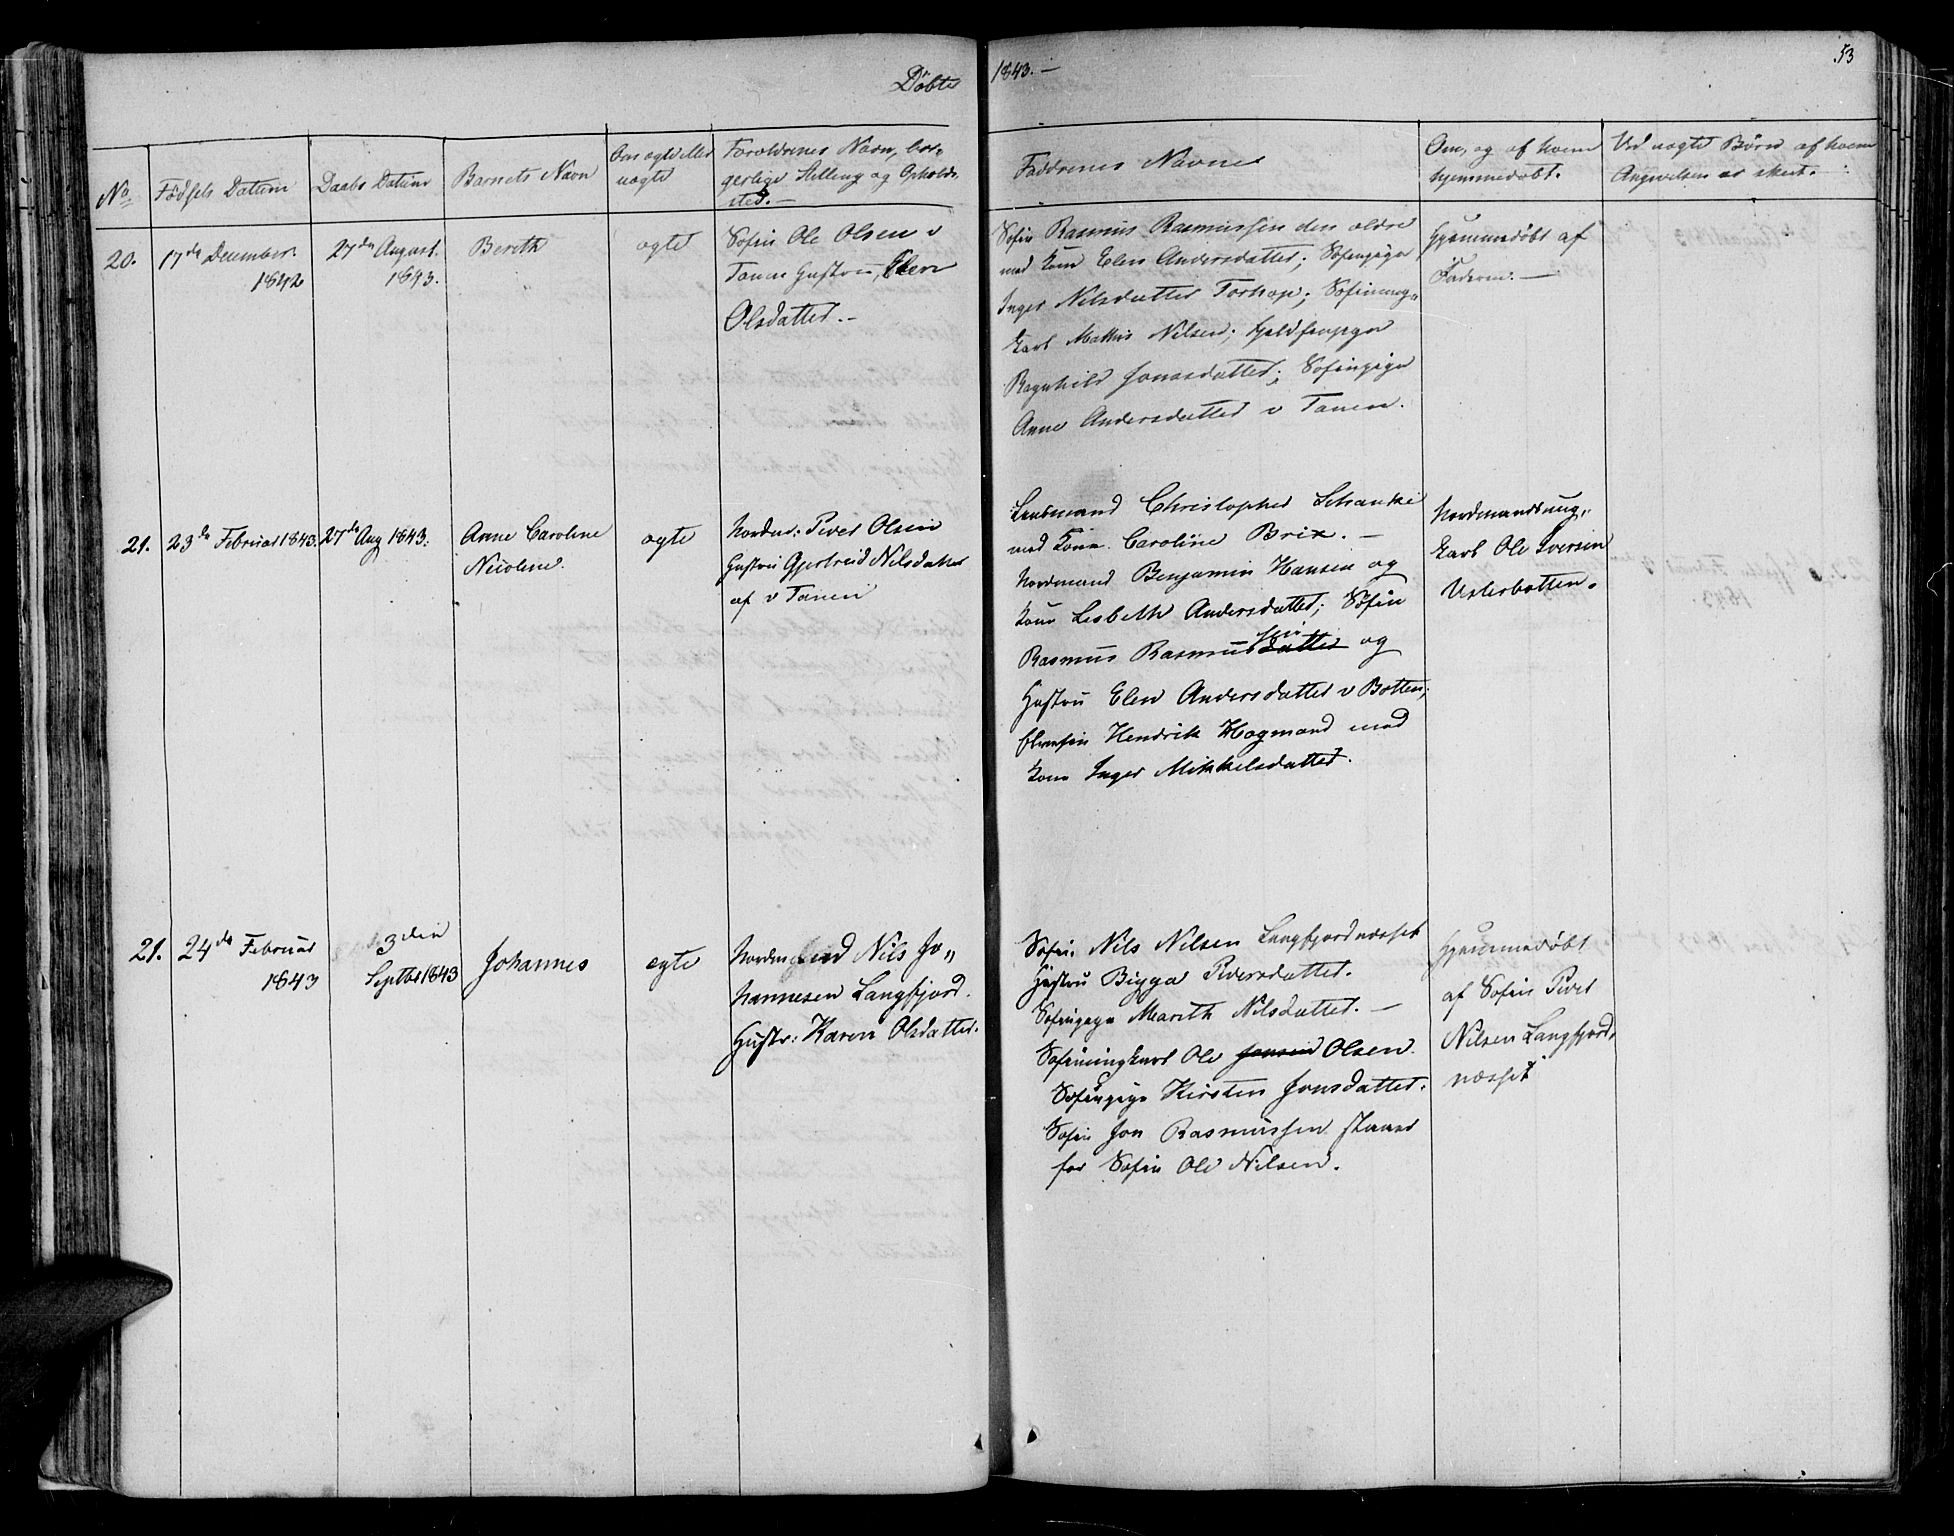 Døbte
1843. —
53
No
Fødsels Datum
Daabs Datum
Barnets Navn
Om ægte eller
uægte
Forældrenes Navn, bor-
gerlige Stilling og Opholds-
sted. —
Faddrenes Navne
Om, og af hvem
hjemmedøbt.
Ved uægte Børn af hvem
Angivelsen er skeet. —
20.
17de December
1842
27de August
1843.
Bereth
ægte
Søfin Ole Olsen v
Tanen Hustru, Elen
Olsdatter. —
Søfin Rasmus Rasmussen den ældre
med Kone Elen Andersdatter; Søfinpige
Inger Nilsdatter Torhop; Søfinung-
karl Mathis Nilsen; Fjeldfinpige
Ragnhild Jonasdatter; Søfinpige
Anne Andersdatter v Tanen.
Hjemmedøbt af
Faderen. —
21.
23de Februar 1843.
27de Aug 1843.
Anne Caroline
Nicoline.
ægte
Nordm: Peder Olsen
Hustru Gjertreid Nilsdatter
af v Tanen
Lensmand Christopher Schanke
med Kone Caroline Brix. —
Nordmand Benjamin Hansen og
Kone Lesbeth Andersdatter; Søfin
Rasmus Rasmusdatter sen og
Hustru Elen Andersdatter v Botten;
Elvefin Hendrik Hogmand med
Kone Inger Mikkelsdatter.
Nordmandsung-
karl Ole Iversen
Vesterbotten.
21.
24de Februar
1843
3den
Septbr 1843
Johannes
ægte
Nordmand Nils Jo-
hannesen Langfjord.
Hustr: Karen Olsdatter.
Søfin Nils Nilsen Langfjordnæsset
Hustru Bigga Pedersdatter.
Søfinpige Marith Nilsdatter. —
Søfinungkarl Ole Jonsen Olsen.
Søfinpige Kirsten Jonsdatter.
Søfin Jon Rasmussen staaer
for Søfin Ole Nilsen.
Hjemmedøbt
af Søfin Peder
Nilsen Langfjord-
næsset